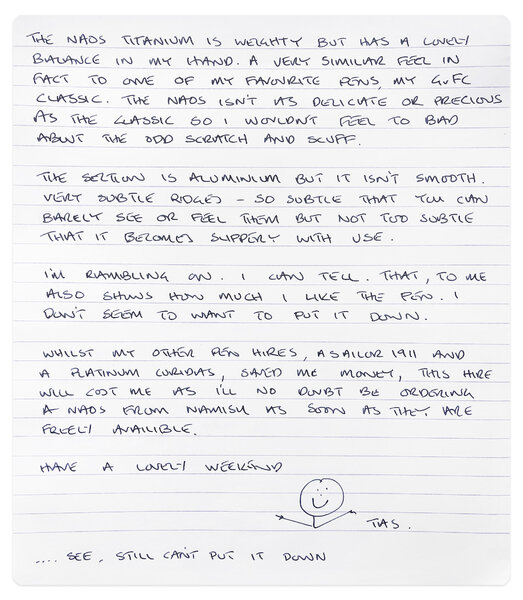 THE NAOS TITANIUM IS WEIGHTY BUT HAS A LOVELY
BALANCE IN MY HAND. A VERY SIMILAR FEEL IN
FACT TO ONE OF MY FAVOURITE PENS, MY GVFC
CLASSIC. THE NAOS ISN'T AS DELICATE OR PRECIOUS
AS THE CLASSIC SO I WOULDN'T FEEL TO BAD
ABOUT THE ODD SCRATCH AND SCUFF.
THE SECTION IS ALUMINIUM BUT IT ISN'T SMOOTH.
VERY SUBTLE RIDGES - SO SUBTLE THAT YOU CAN
BARELY SEE OR FEEL THEM BUT NOT TOO SUBTLE
THAT IT BECOMES SLIPPERY WITH USE.
I'M RAMBLING ON. I CAN TELL. THAT, TO ME
ALSO SHOWS HOW MUCH I LIKE THE PEN. I
DON'T SEEM TO WANT TO PUT IT DOWN.
WHILST MY OTHER PEN HIRES, A SAILOR 1911 AND
A PLATINUM CURIDAS, SAVED ME MONEY, THIS HIRE
WILL COST ME AS I'LL NO DOUBT BE ORDERING
A NAOS FROM NAMISU AS SOON AS THEY ARE
FREELY AVAILIBLE.
HAVE A LOVELY WEEKEND
TAS.
.... SEE, STILL CAN'T PUT IT DOWN